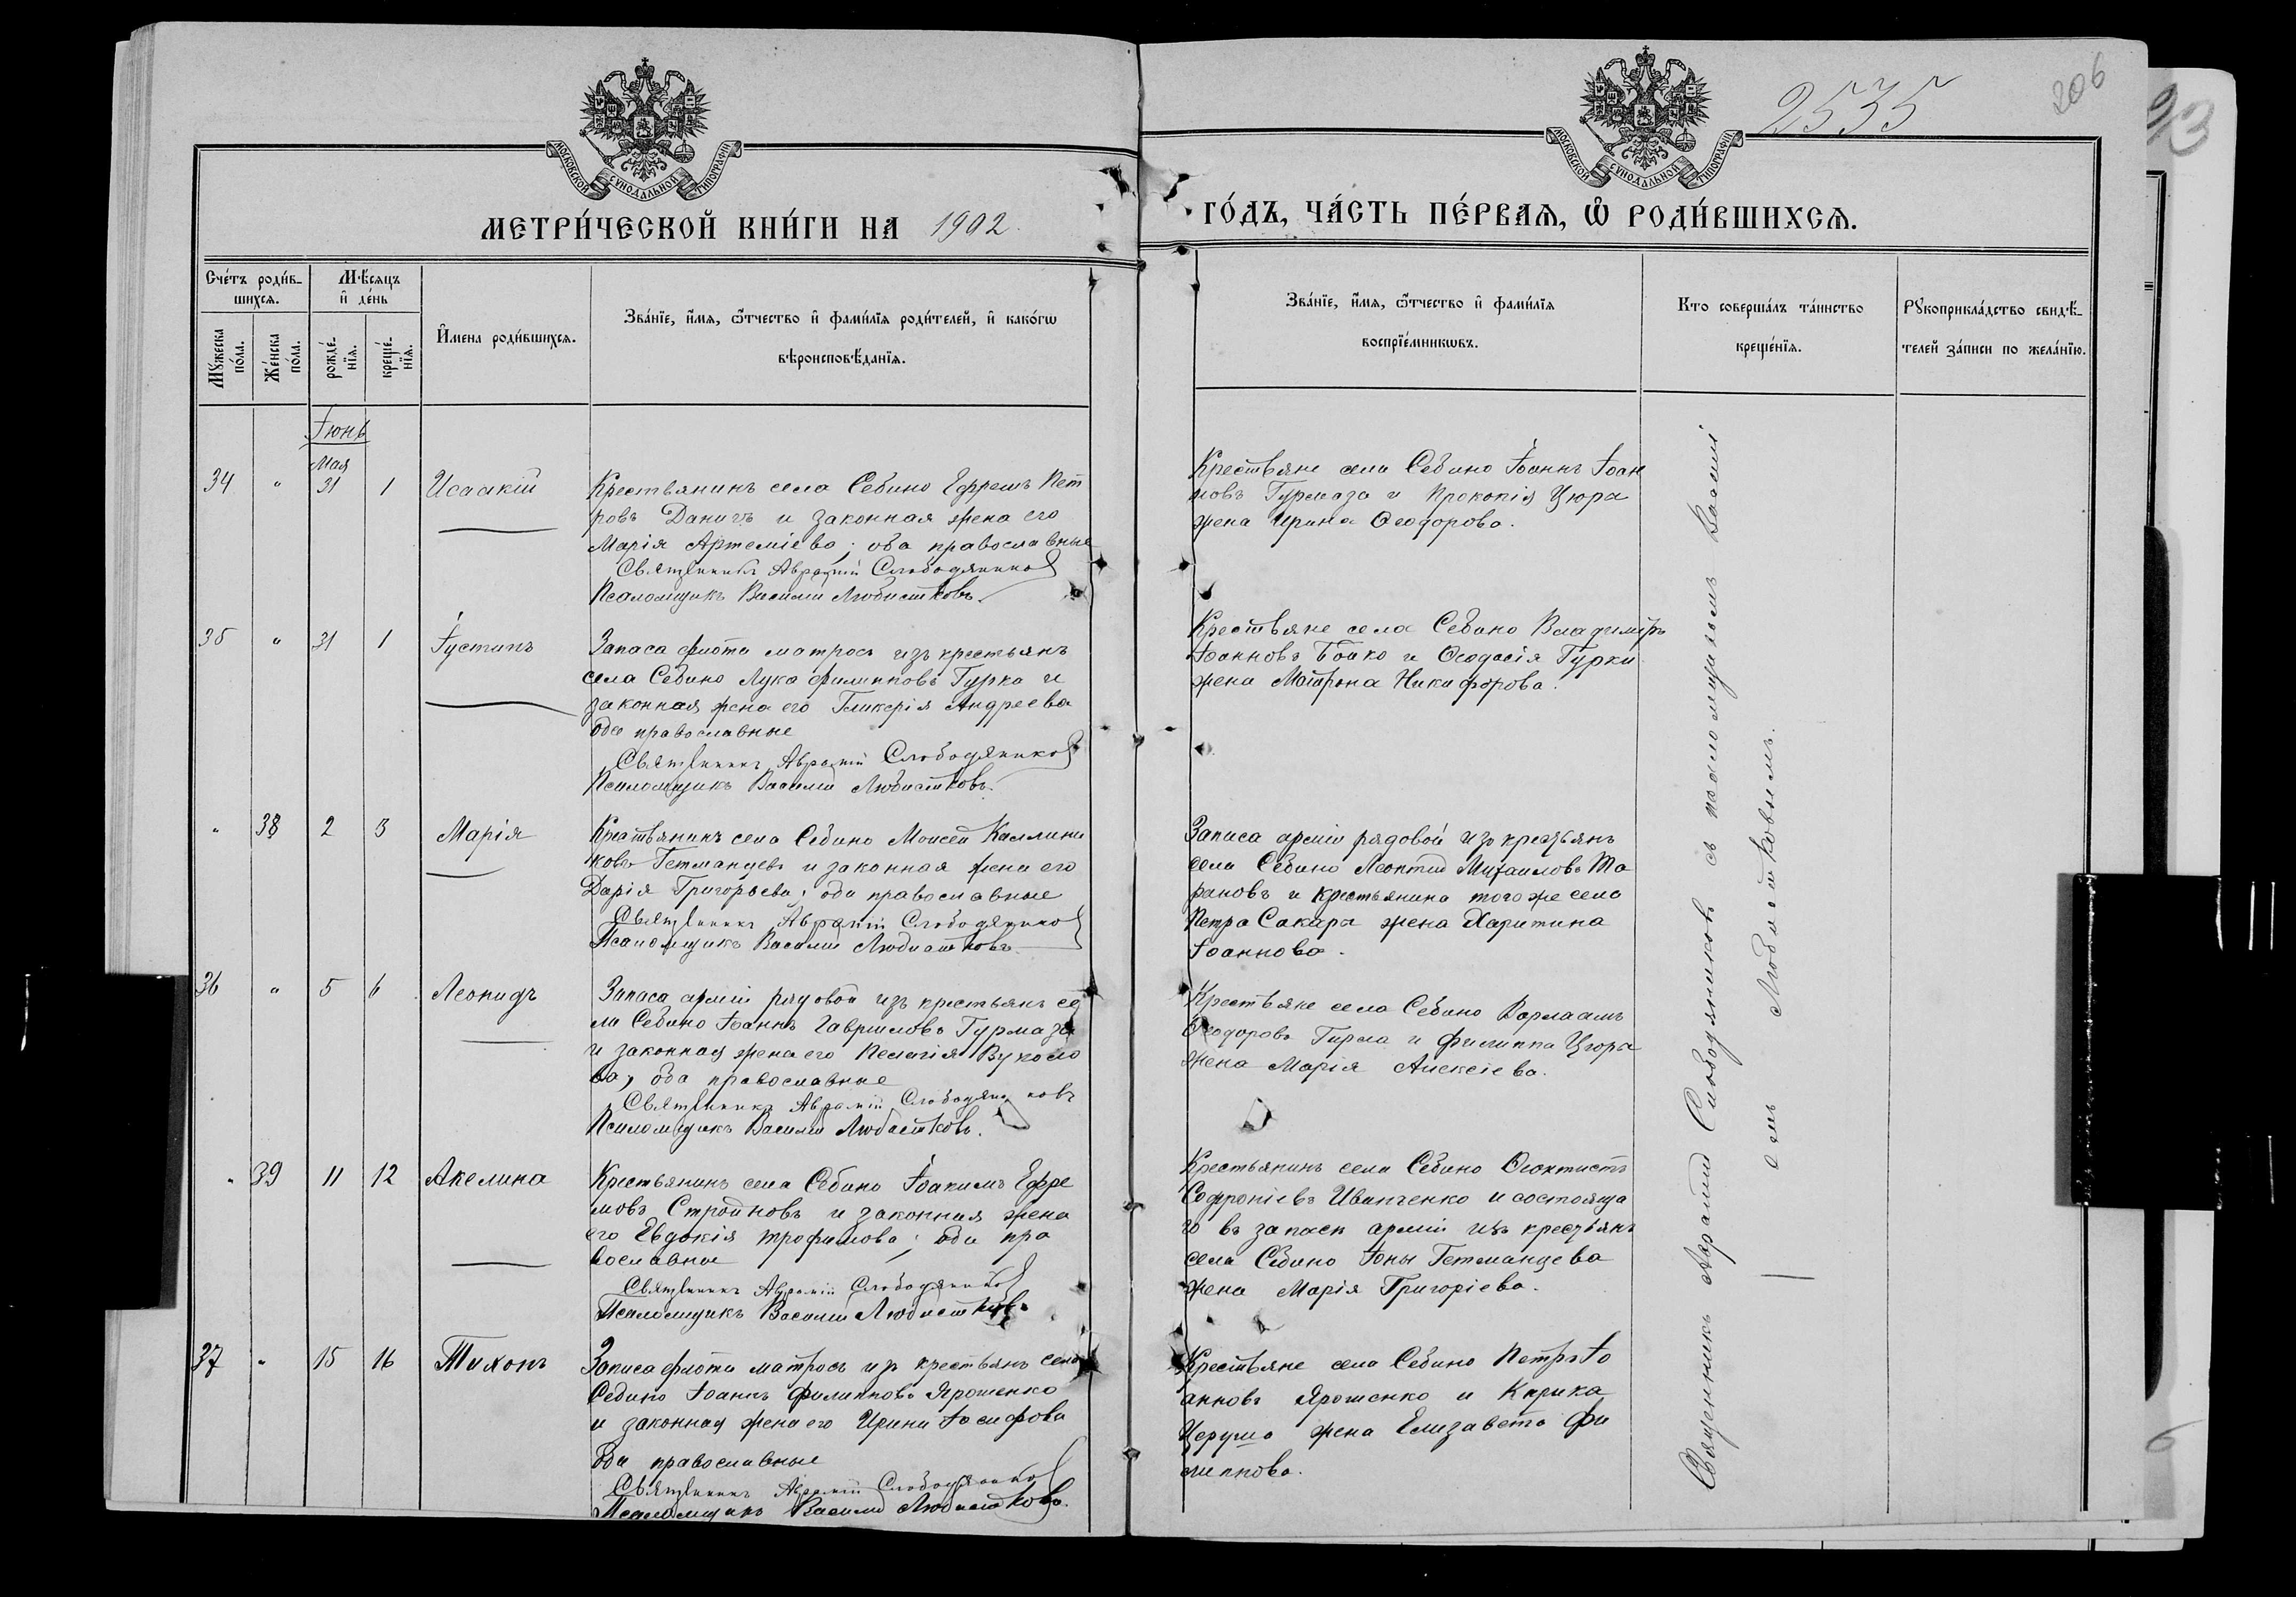 2535
206
23
МОСКОВСКОЙ СУНОДАЛЬНОЙ ТИПОГРАФІИ
МОСКОВСКОЙ СУНОДАЛЬНОЙ ТИПОГРАФІИ
МЕТРИ́ЧЕСКОЙ КНИ́ГИ НА 1902
ГО́ДЪ, ЧА́СТЬ ПЕ́РВАѦ, Ѡ҆ РОДИ́ВШИХСѦ.
Сче́тъ роди́в-
шихсѧ.
Мꙋ́жеска по́ла.
Же́нска по́ла.
Мѣ́сѧцъ
и҆ де́нь
рожде́-
нїѧ.
креще́-
нїѧ.
И҆мена роди́вшихсѧ.
Зва́нїе, и҆́мѧ, ѻ҆́тчество и҆ фами́лїѧ роди́телей, и҆ како́гѡ
вѣроисповѣ́данїѧ.
Зва́нїе, и҆́мѧ, ѻ҆́тчество и҆ фами́лїѧ
воспрїе́мникѡвъ.
Кто совершáлъ тáинство
креще́нїѧ.
Рꙋкоприклáдство свидѣ́-
телей зáписи по желáнїю.
Іюнь
Мая
34 " 31 1 Исаакій
Крестьянинъ села Себино Ефремъ Пет
ровъ Даничъ и законная жена его
Марія Артеміева; оба православные
Священникъ Аврамій Слободяниковъ
Псаломщикъ Василій Любистковъ.
Крестьяне села Себино Іоаннъ Іоан
новъ Гурмаза и Прокопія Цюра
жена Ирина Ѳеодорова.
35 " 31 1 Іустинъ
Запаса флота матросъ изъ крестьянъ
села Себино Лука Филипповъ Гурка и
законная жена его Гликерія Андреева
оба православные
Священникъ Аврамій Слободяниковъ
Псаломщикъ Василій Любистковъ.
Крестьяне села Себино Владиміръ
Іоанновъ Бойко и Ѳеодосія Гурки
жена Матрона Никифорова.
" 38 2 3 Марія
Крестьянинъ села Себино Моисей Каллини
ковъ Гетманцевъ и законная жена его
Дарія Григорьева; оба православные
Священникъ Аврамій Слободяниковъ
Псаломщикъ Василій Любистковъ
Запаса арміи рядовой изъ крестьянъ
села Себино Леонтій Михаиловъ Та
рановъ и крестьянина того же села
Петра Сакара жена Харитина
Іоаннова.
36 " 5 6 Леонидъ
Запаса арміи рядовой изъ крестьянъ се
ла Себино Іоаннъ Гавриловъ Гурмаза
и законная жена его Пелагія Вуколо
ва; оба православные
Священникъ Аврамій Слободяниковъ
Псаломщикъ Василій Любистковъ.
Крестьяне села Себино Варлаамъ
Ѳеодоровъ Гирла и Филиппа Цюра
жена Марія Алексіева.
" 39 11 12 Акелина
Крестьянинъ села Себино Іоакимъ Ефре
мовъ Стройновъ и законная жена
его Евдокія Трофимова; оба пра
вославные
Священникъ Аврамій Слободяниковъ
Псаломщикъ Василій Любистковъ.
Крестьянинъ села Себино Ѳеоктистъ
Софроніевъ Иванченко и состояща
го въ запасѣ арміи изъ крестьянъ
села Себино Іоны Гетманцева
жена Марія Григоріева.
37 " 15 16 Тихонъ
Запаса флота матросъ изъ крестьянъ села
Себино Іоаннъ Филипповъ Ярошенко
и законная жена его Ирина Іосифова
оба православные
Священникъ Аврамій Слободяниковъ
Псаломщикъ Василій Любистковъ.
Крестьяне села Себино Петръ Іо
анновъ Ярошенко и Кирика
Церуша жена Елизавета Фи
липпова.
Священникъ Аврамій Слободяниковъ съ псаломщикомъ Василі
емъ Любистковымъ.